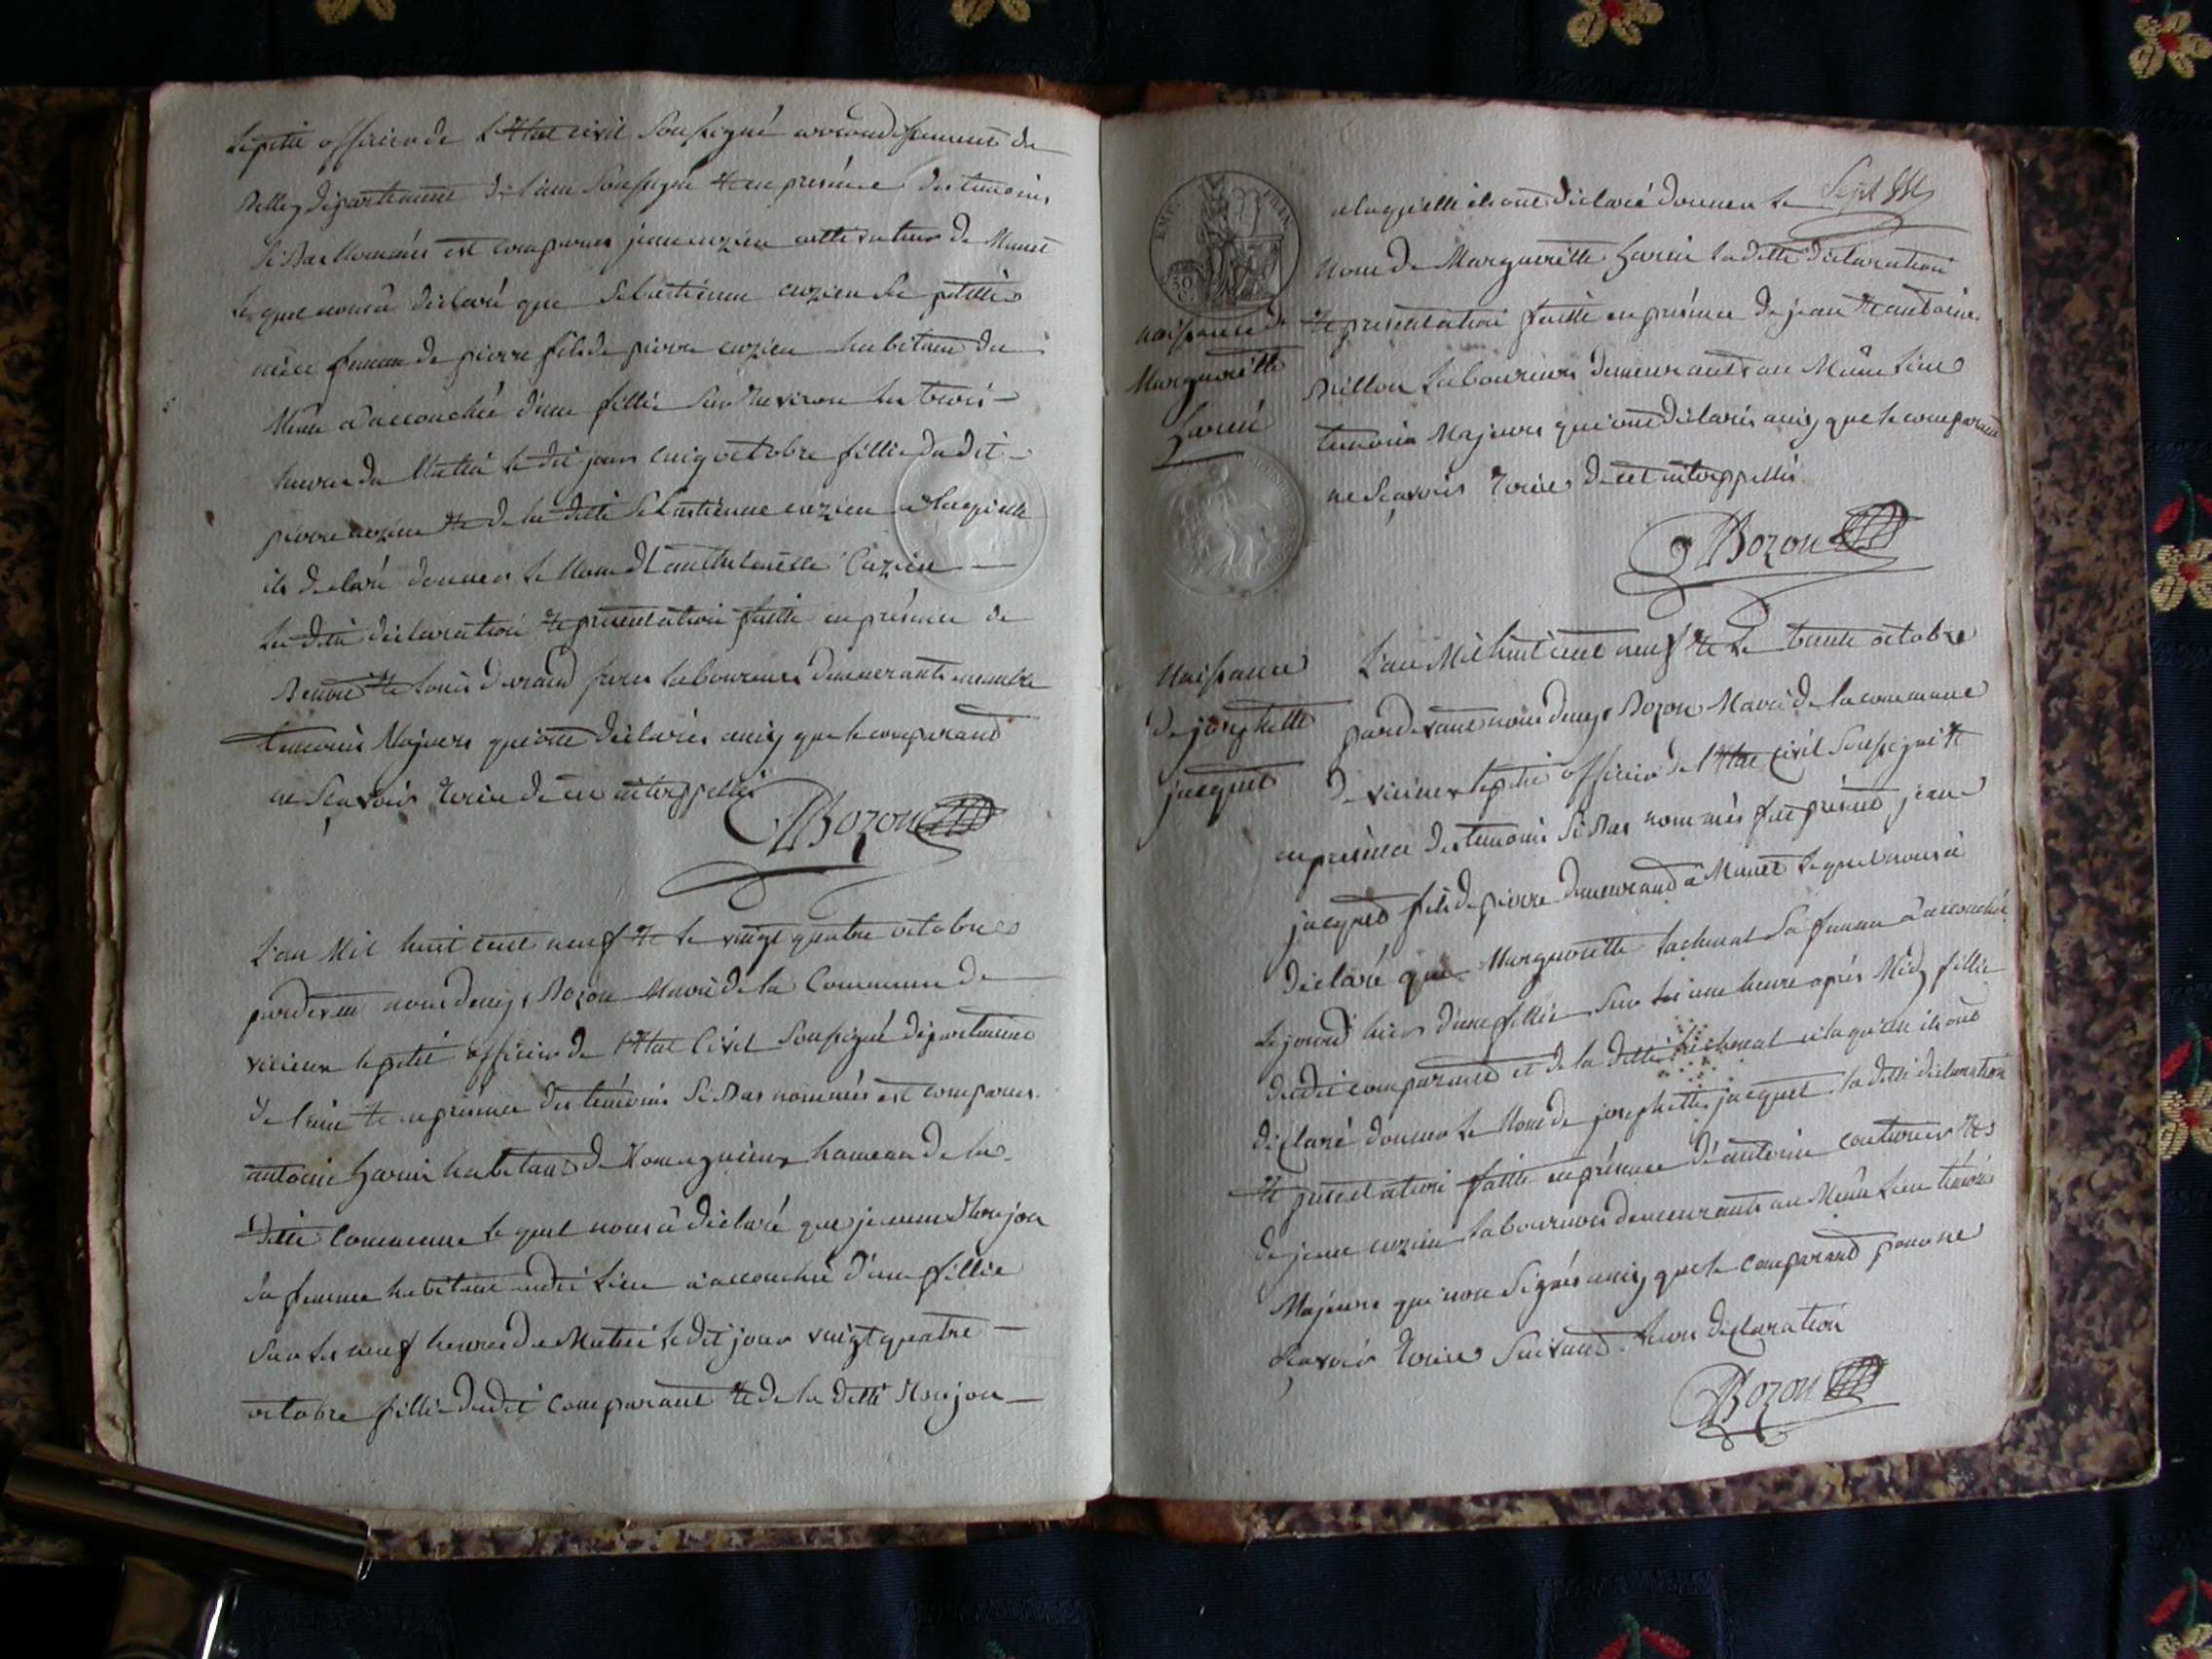 le petit officier de l'Etat civil soussigné arrondissement de
Belley departement de l'ain soussigné et en présence des temoins
si bas nommés est comparus jean cuzieu cultivateur de Munet
le quel nous a déclaré que sebastienne cuzieu sa petitte
niéce femme de pierre fils de pierre cuzieu habitant du
Même a accouchée d'une fillie sur environ les trois
heures du Matin le dit jour cinq octobre fillie du dit
pierre cuzieu et de la ditte sebastienne cuzieu a laquelle
ils declaré donner le Nom d' Cuzieu
la ditte déclaration et presentation faitte en présence de
Benoit et Louis durand freres laboureurs demeurants
temoins Majeurs qui ont déclarés ainsy que le comparand
ne sçavoir écrire de ce interppellés
Bozon
L'an Mil huit cent neuf et le vingt quatre octobre
pardevant nous denys Bozon Maire de la Commune de
virieux le petit officier de l'Etat Civil soussigné departement
de l'ain et en présence des témoins si bas nommés est comparus
antoine habitand de Romagnieux hameau de la
ditte Commune le quel nous a déclaré que jeanne
sa femme habitant audit Lieu a accouchée d'une fillie
sur les neuf heures du Matin le dit jour vingt quatre
octobre fillie dudit Comparant et de la ditte
Sept
a laquelle ils ont déclaré donner le
naissance de
Margueritte
Nom de Margueritte la ditte déclaration
et presentation faitte en présence de jean et antoine
Billion laboureurs demeurants au Même Lieu
temoins Majeurs qui ont déclarés ainsy que le comparand
ne sçavoir écrire de cet interppellés
Bozon
Naissance
de josephette
jacquet
L'an Mil huit cent neuf et le trente octobre
pardevant nous denys Bozon Maire de la commune
de virieux le petit officier de l'Etat Civil soussigné et
en présence des temoins si bas nommés fut présent jean
jacquet fils de pierre demeurand a Munet le quel nous a
déclaré que Margueritte sa femme a accouchée
le jourd hier d'une fillie sur les une heure aprés Midy fillie
dudit comparand et de la ditte a laquelle ils ont
déclaré donner le Nom de josephette jacquet la ditte déclaration
et presentation faitte en présence d'antoine couturier et
de jean cuzieu laboureurs demeurants au Même Lieu témoins
Majeurs qui non signés ainsy que le comparand pour ne
sçavoir écrire suivand leurs déclaration
Bozon